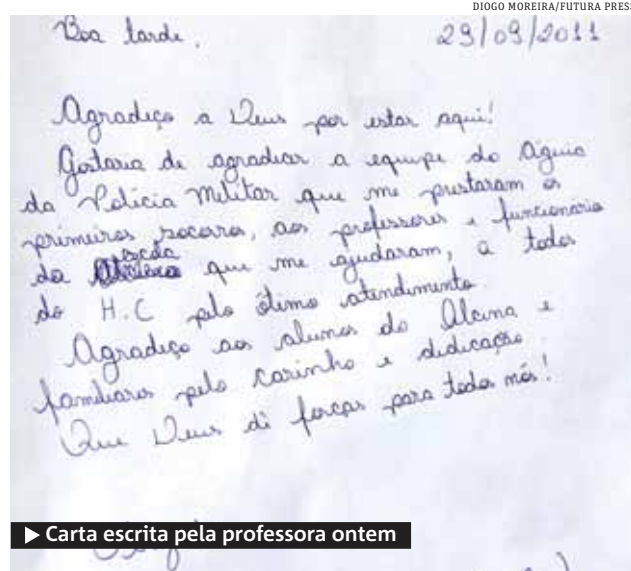 DIOGO MOREIRA/FUTURA PRES
Boa tarde, 29/09/2011
Agradeço a Deus por estar aqui!
Gostaria de agradecer a equipe do Águia
da Polícia Militar que me prestaram os
primeiros socorros, aos professores e funcionários
da escola que me ajudaram, a todos
do H.C pelo ótimo atendimento.
Agradeço aos alunos do Alcina e
familiares pelo carinho e dedicação.
Que Deus dê forças para todos nós!
▶ Carta escrita pela professora ontem